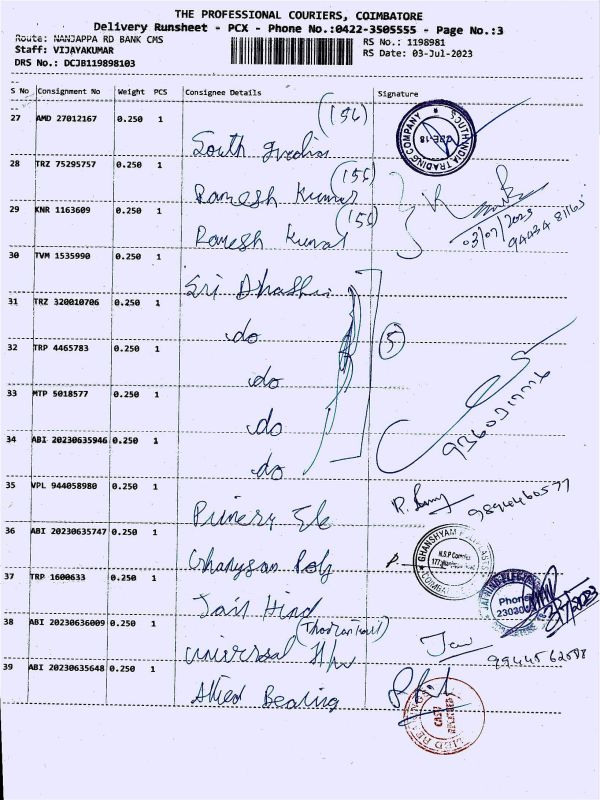 THE PROFESSIONAL COURIERS, COIMBATORE
Delivery Runsheet - PCX - Phone No.:0422-3505555 - Page No.:3
Route: NANJAPPA RD BANK CMS
RS No.: 1198981
Staff: VIJAYAKUMAR
RS Date: 03-Jul-2023
DRS No.: DCJB119898103
S No Consignment No Weight PCS Consignee Details Signature
27 AMD 27012167 0.250 1
(156)
South India
SOUTH INDIA TRADING COMPANY
CBE-18
28 TRZ 75295757 0.250 1
(156)
Ramesh Kumar
29 KNR 1163609 0.250 1
(156)
Ramesh Kumar
03/07/2023
30 TVM 1535990 0.250 1
Sri
31 TRZ 320010706 0.250 1
do
5
32 TRP 4465783 0.250 1
do
33 MTP 5018577 0.250 1
do
34 ABI 20230635946 0.250 1
do
35 VPL 944058980 0.250 1
36 ABI 20230635747 0.250 1
GHANSHYAM
N.S.P Complex
COIMBATORE
37 TRP 1600633 0.250 1
Jain Hind
Phone
38 ABI 20230636009 0.250 1
universal
39 ABI 20230635648 0.250 1
Allied Bearing